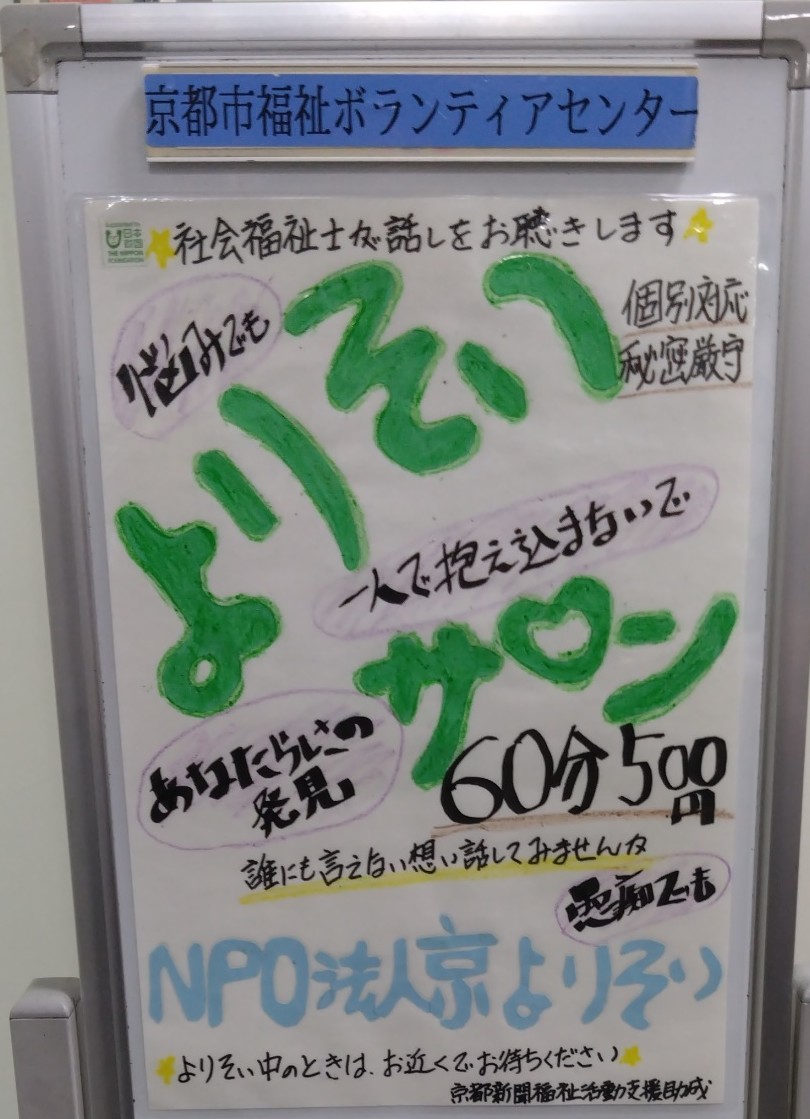 京都市福祉ボランティアセンター
日本財団
THE NIPPON
FOUNDATION
社会福祉士が話しをお聴きします
個別対応
秘密厳守
悩みでも
よりそい
一人で抱え込まないで
サロン
あなたらしさの
発見
60分500円
誰にも言えない想い話してみませんか
愚痴でも
NPO法人京よりそい
よりそい中のときは、お近くでお待ちください
京都新聞福祉活動支援助成